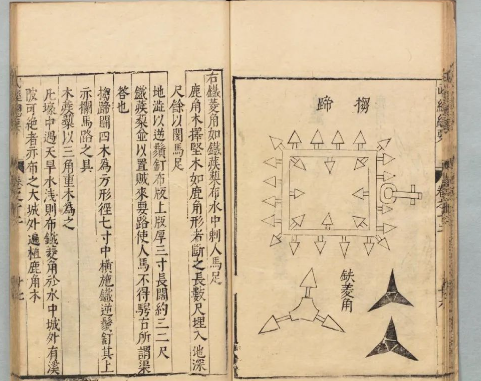 搊蹄
鉄菱角
右鐵菱角如鐵蒺藜布水中刺人馬足
鹿角木擇堅木如鹿角形者斷之長數尺埋入池深
尺餘以閡馬足
地澁以逆鬚釘布版上版厚三寸長闊約三二尺
鐵蒺藜並以置賊來要路使人馬不得騁古所謂渠
答也
搊蹄闊四木為方形徑七寸中橫施鐵逆鬚釘其上
亦攔馬路之具
木蒺藜以三角重木為之
凡壕中遇天旱水淺則布鐵菱角於水中城外有溪
陂可絶者亦布之大城外遍植鹿角木